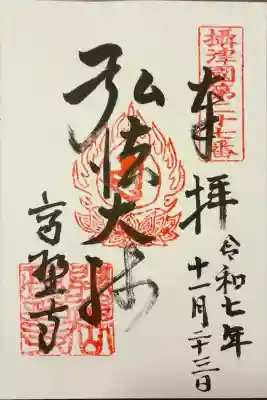 攝津國第二十七番
奉拝
令和七年
十一月二十三日
弘法大師
高野寺